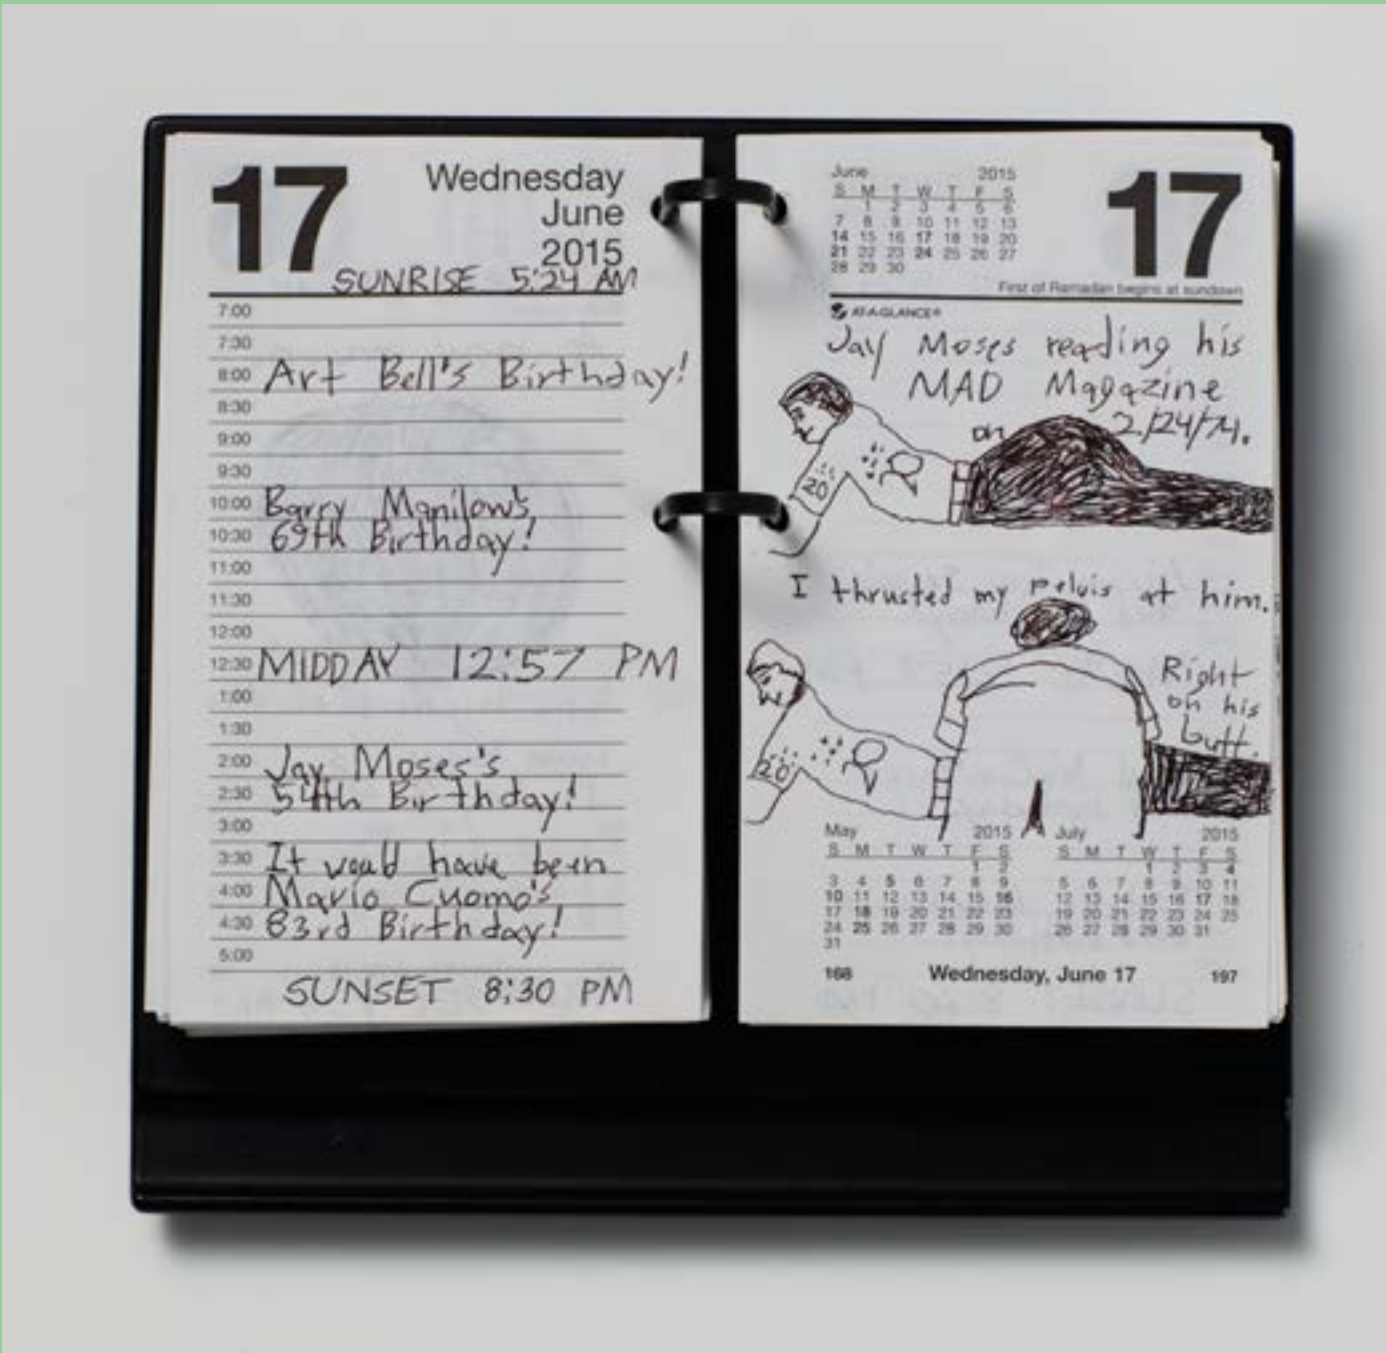 17
Wednesday
June
2015
SUNRISE 5:24 AM
7:00
7:30
8:00 Art Bell's Birthday!
8:30
9:00
9:30
10:00 Barry Manilow's
10:30 69th Birthday!
11:00
11:30
12:00
12:30 MIDDAY 12:57 PM
1:00
1:30
2:00 Jay Moses's
2:30 54th Birthday!
3:00
3:30 It would have been
4:00 Mario Cuomo's
4:30 83rd Birthday!
5:00
SUNSET 8:30 PM
June 2015
S M T W T F S
1 2 3 4 5 6
7 8 9 10 11 12 13
14 15 16 17 18 19 20
21 22 23 24 25 26 27
28 29 30
17
First of Ramadan begins at sundown
AT-A-GLANCE®
Jay Moses reading his
MAD Magazine
on 2/24/74.
20
I thrusted my pelvis at him.
Right
on his
butt.
20
May 2015
S M T W T F S
1 2
3 4 5 6 7 8 9
10 11 12 13 14 15 16
17 18 19 20 21 22 23
24 25 26 27 28 29 30
31
July 2015
S M T W T F S
1 2 3 4
5 6 7 8 9 10 11
12 13 14 15 16 17 18
19 20 21 22 23 24 25
26 27 28 29 30 31
168 Wednesday, June 17 197